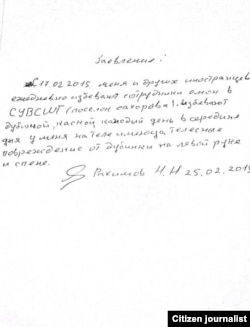 Заявление:
С 17.02.2015 меня и других иностранцев
ежедневно избевают сотрудники омон в
СУВСИГ (поселок сахорова). избевают
дубинкой, каждый день в середине
дня у меня на теле имеюца телесные
повреждение от дубинки на левой руке
и спене.
Рахимов Н.Н 25.02.2015
Citizen journalist